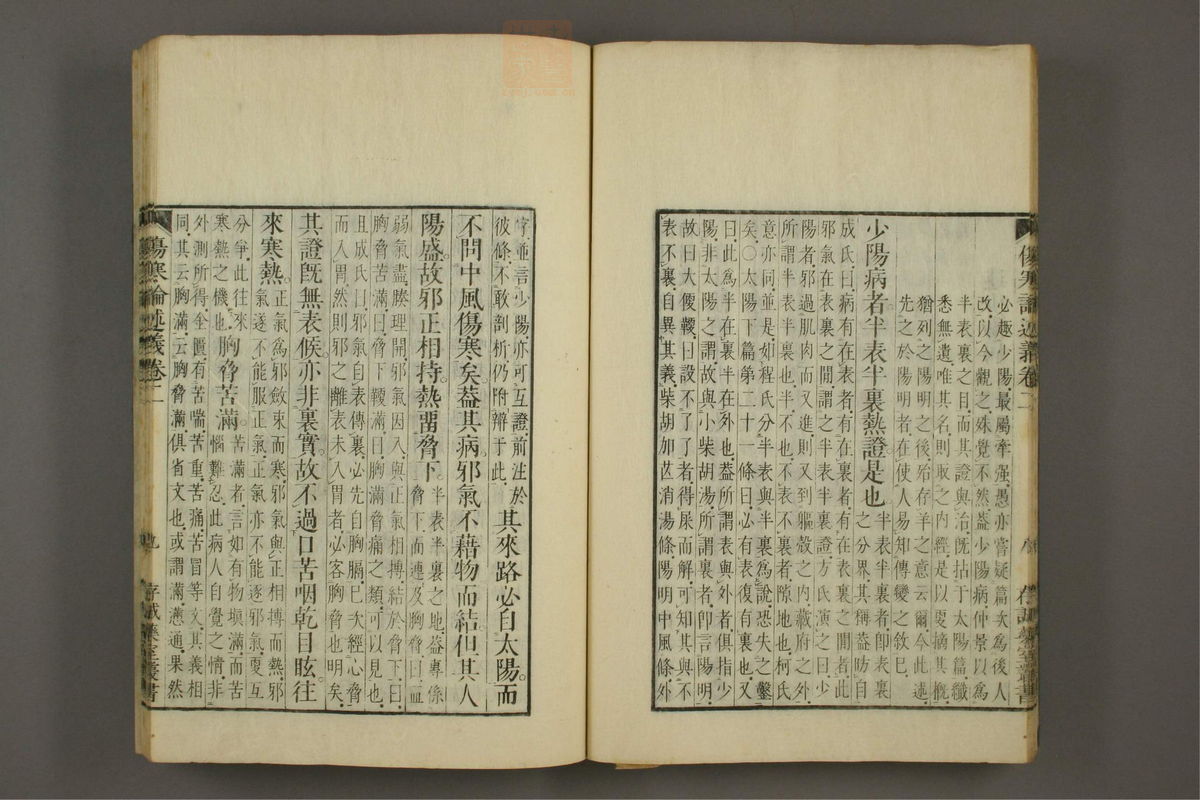 傷寒論述義卷二
八
存誠藥室叢書
必趣少陽最屬牽强愚亦嘗疑篇次爲後人
改以今觀之殊覺不然蓋少陽病仲景以爲
半表裏之目而其證與治旣拈于太陽篇纖
悉無遺唯其名則取之内經是以更摘其槪
猶列之陽明之後殆存羊之意云爾今此述
先之於陽明者在使人易知傳變之敘已
少陽病者半表半裏熱證是也
半表半裏者卽表裏
之分界其稱蓋昉自
成氏曰病有在表者有在裏者有在表裏之閒者此
邪氣在表裏之閒謂之半表半裏證方氏演之曰少
陽者邪過肌肉而又進則又到軀殻之内藏府之外
所謂半表半裏也半不也不表不裏者隙地也柯氏
意亦同並是如程氏分半表與半裏爲說恐失之鑿
矣○太陽下篇第二十一條曰必有表復有裏也又
曰此爲半在裏半在外也蓋所謂表與外者俱指少
陽非太陽之謂故與小柴胡湯所謂裏者卽言陽明
故曰大便鞕曰設不了了者得屎而解可知其與不
表不裏自異其義柴胡加芒消湯條陽明中風條外
字並言少陽亦可互證前注於
彼條不敢剖析仍附辯于此
其來路必自太陽。而
不問中風傷寒矣。蓋其病邪氣不藉物而結但其人
陽盛。故邪正相持。熱畱脅下。
半表半裏之地蓋專係
脅下而連及胸脅曰血
弱氣盡腠理開邪氣因入與正氣相搏結於脅下曰
胸脅苦滿曰脅下鞕滿曰胸滿脅痛之類可以見也
且成氏曰邪氣自表傳裏必先自胸膈巳次經心脅
而入胃然則邪之離表未入胃者必客胸脅也明矣
其證旣無表候亦非裏實。故不過口苦咽乾目眩往
來寒熱。
正氣爲邪斂束而寒邪氣與正相搏而熱邪
氣遂不能服正氣正氣亦不能逐邪氣更互
分爭此往來
寒熱之機也
胸脅苦滿。
苦滿者言如有物塡滿而苦
惱難忍此病人自覺之情非
外測所得金匱有苦喘苦重苦痛苦冒等文其義相
同其云胸滿云胸脅滿俱省文也或謂滿懣通果然
傷寒論述義卷二
九
存誠藥室叢書